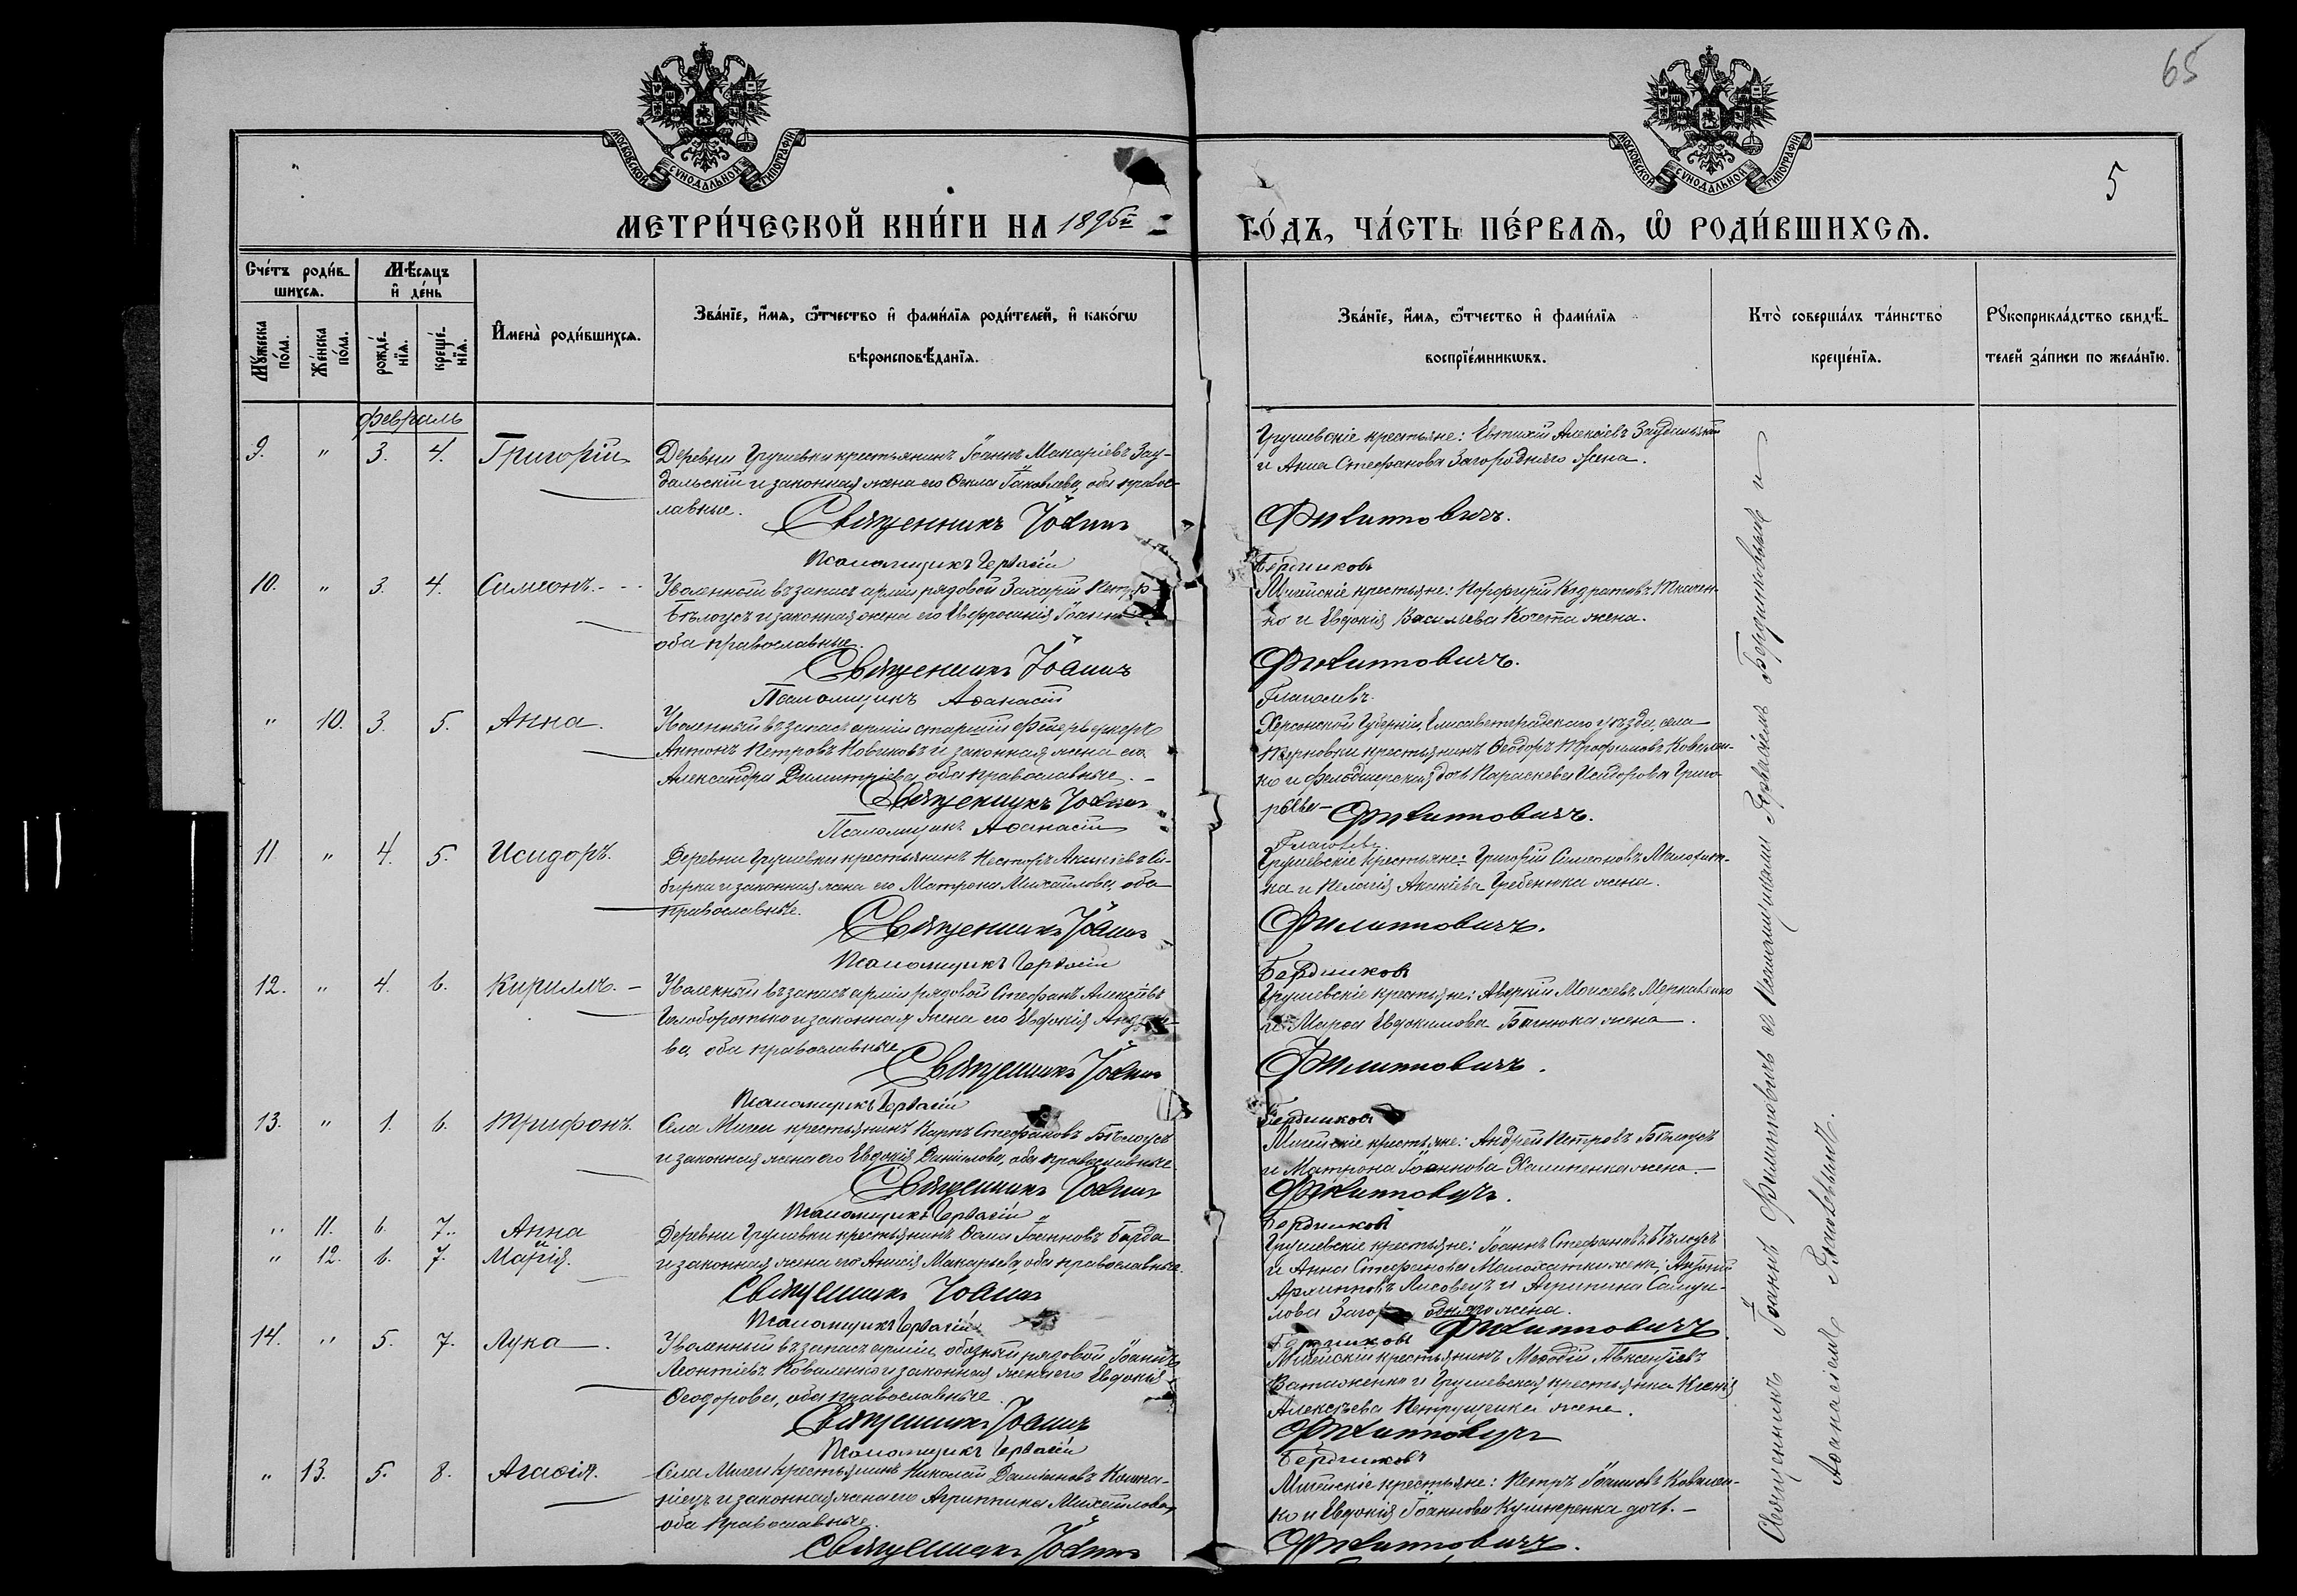 65
5
МОСКОВСКОЙ СѴНОДАЛЬНОЙ ТИПОГРАФІИ
МОСКОВСКОЙ СѴНОДАЛЬНОЙ ТИПОГРАФІИ
МЕТРИ́ЧЕСКОЙ КНИ́ГИ НА 1895й
ГО́ДЪ, ЧА́СТЬ ПЕ́РВАѦ, Ѡ РОДИ́ВШИХСѦ.
Сче́тъ роди́в-
шихсѧ.
Мѣ́сѧцъ
и҆ де́нь
Мꙋ́жеска
по́ла.
Же́нска
по́ла.
рожде́-
нїѧ.
креще́-
нїѧ.
И҆мена̀ роди́вшихсѧ.
Зва́нїе, и҆́мѧ, ѻ҆́тчество и҆ фами́лїѧ роди́телей, и҆ како́гѡ
вѣроисповѣ́данїѧ.
Зва́нїе, и҆́мѧ, ѻ҆́тчество и҆ фами́лїѧ
воспрїе́мникѡвъ.
Кто̀ соверша́лъ та́инство
креще́нїѧ.
Рꙋкоприкла́дство свидѣ́-
телей за́писи по жела́нїю.
февраль
9. " 3. 4. Григорій
Деревни Грушевки крестьянинъ Іоаннъ Макаріевъ Зау-
дальскій и законная жена его Ѳекла Іаковлева, оба правос-
лавные.
Священникъ Іоаннъ
Псаломщикъ Гервасій
Грушевскіе крестьяне: Евтихій Алексіевъ Заудальскій
и Анна Стефанова Загородняго жена.
Филипповичъ.
Бердниковъ
10. " 3. 4. Симеонъ.
Уволенный въ запасъ арміи рядовой Захарій Петр
Бѣлоусъ и законная жена его Евфросинія Іоанн
оба православные.
Священникъ Іоаннъ
Псаломщикъ Аѳанасій
Мигейскіе крестьяне: Порфирій Кодратовъ Ткачен-
ко и Евдокія Васильева Кочета жена.
Филипповичъ.
Глаголевъ.
" 10. 3. 5. Анна.
Уволенный въ запасъ арміи старшій фейерверкеръ
Антонъ Петровъ Новаковъ и законная жена его
Александра Димитріева, оба православные.
Священникъ Іоаннъ
Псаломщикъ Аѳанасій
Херсонской Губерніи, Елисаветградскаго уѣзда, села
крестьянинъ Ѳеодоръ Трофимовъ Ковален-
ко и фельдшерская дочь Параскева Исидорова Григо-
рьева
Филипповичъ.
Глаголевъ.
11 " 4. 5. Исидоръ.
Деревни Грушевки крестьянинъ Несторъ Акакіевъ Си-
бирка и законная жена его Матрона Михаилова, оба
православные.
Священникъ Іоаннъ
Псаломщикъ Гервасій
Грушевскіе крестьяне: Григорій Симеоновъ Малохат-
ка и Пелагія Акакіева Гребенюка жена.
Филипповичъ.
Бердниковъ
12. " 4. 6. Кириллъ.
Уволенный въ запасъ арміи рядовой Стефанъ Алексіевъ
Голобородько и законная жена его Евдокія Андрее-
ва, оба православные
Священникъ Іоаннъ
Псаломщикъ Гервасій
Грушевскіе крестьяне: Аверкій Моисеевъ Меркавенко
и Марѳа Евдокимова Багнюка жена.
Филипповичъ.
Бердниковъ
13. " 1. 6. Трифонъ.
Села Мигеи крестьянинъ Карпъ Стефановъ Бѣлоусъ
и законная жена его Евдокія Даніилова, оба православные
Священникъ Іоаннъ
Псаломщикъ Гервасій
Мигейскіе крестьяне: Андрей Петровъ Бѣлоусъ
и Матрона Іоаннова Калиненка жена.
Филипповичъ.
Бердниковъ
" 11. 6. 7. Анна
и
" 12. 6. 7. Марія.
Деревни Грушевки крестьянинъ Ѳома Іоанновъ Барда
и законная жена его Анисія Макарьева, оба православные.
Священникъ Іоаннъ
Псаломщикъ Гервасій
Грушевскіе крестьяне: Іоаннъ Стефановъ Бѣлоусъ
и Анна Стефанова Малохатки жена; Андрей
Архипповъ Лисовецъ и Агрипина Самуи-
лова Загороднаго жена.
Филипповичъ
Бердниковъ
14. " 5. 7. Лука.
Уволенный въ запасъ арміи, обозный рядовой Іоаннъ
Леонтіевъ Коваленко и законная жена его Евдокія
Ѳеодорова, оба православные.
Священникъ Іоаннъ
Псаломщикъ Гервасій
Мигейскій крестьянинъ Меѳодій Авксентіевъ
Ватаженко и Грушевская крестьянка Ксенія
Алексѣева Петрущенка жена.
Филипповичъ
Бердниковъ
" 13. 5. 8. Агаѳія.
Села Мигеи крестьянинъ Николай Даміановъ Компа-
ніецъ и законная жена его Агриппина Михаилова,
оба православные.
Священникъ Іоаннъ
Мигейскіе крестьяне: Петръ Іоанновъ Ковален-
ко и Евдокія Іоаннова Кушнеренка дочь.
Филипповичъ.
Священникъ Іоаннъ Филипповичъ съ псаломщиками Гервасіемъ Бердниковымъ и
Аѳанасіемъ Глаголевымъ.